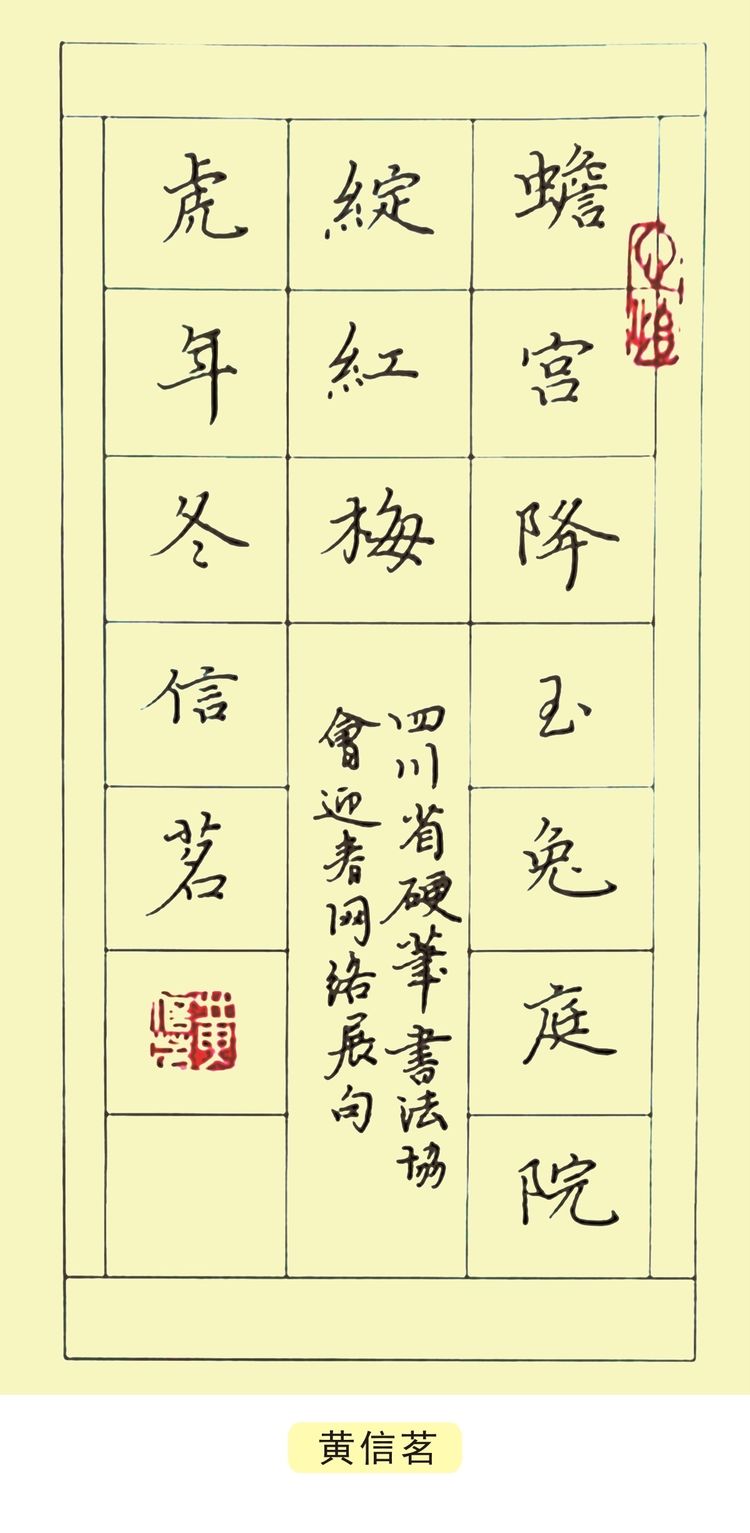 蟾宫降玉兔庭院
綻紅梅
四川省硬筆書法協
會迎春网络展句
虎年冬信茗
黄信茗